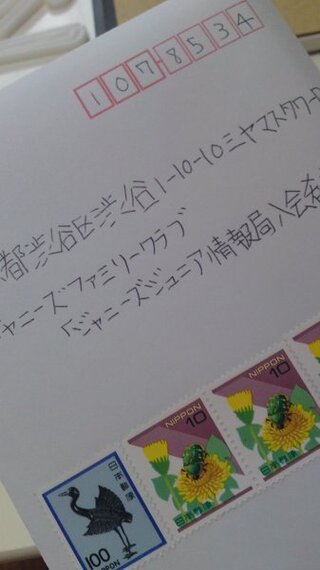 1078534
都渋谷区渋谷1-10-10ミヤマスタワーB
ジャニーズファミリークラブ
「ジャニーズジュニア情報局入会
NIPPON
10
日本郵便
NIPPON
10
日本郵便
日本郵便
100
NIPPON